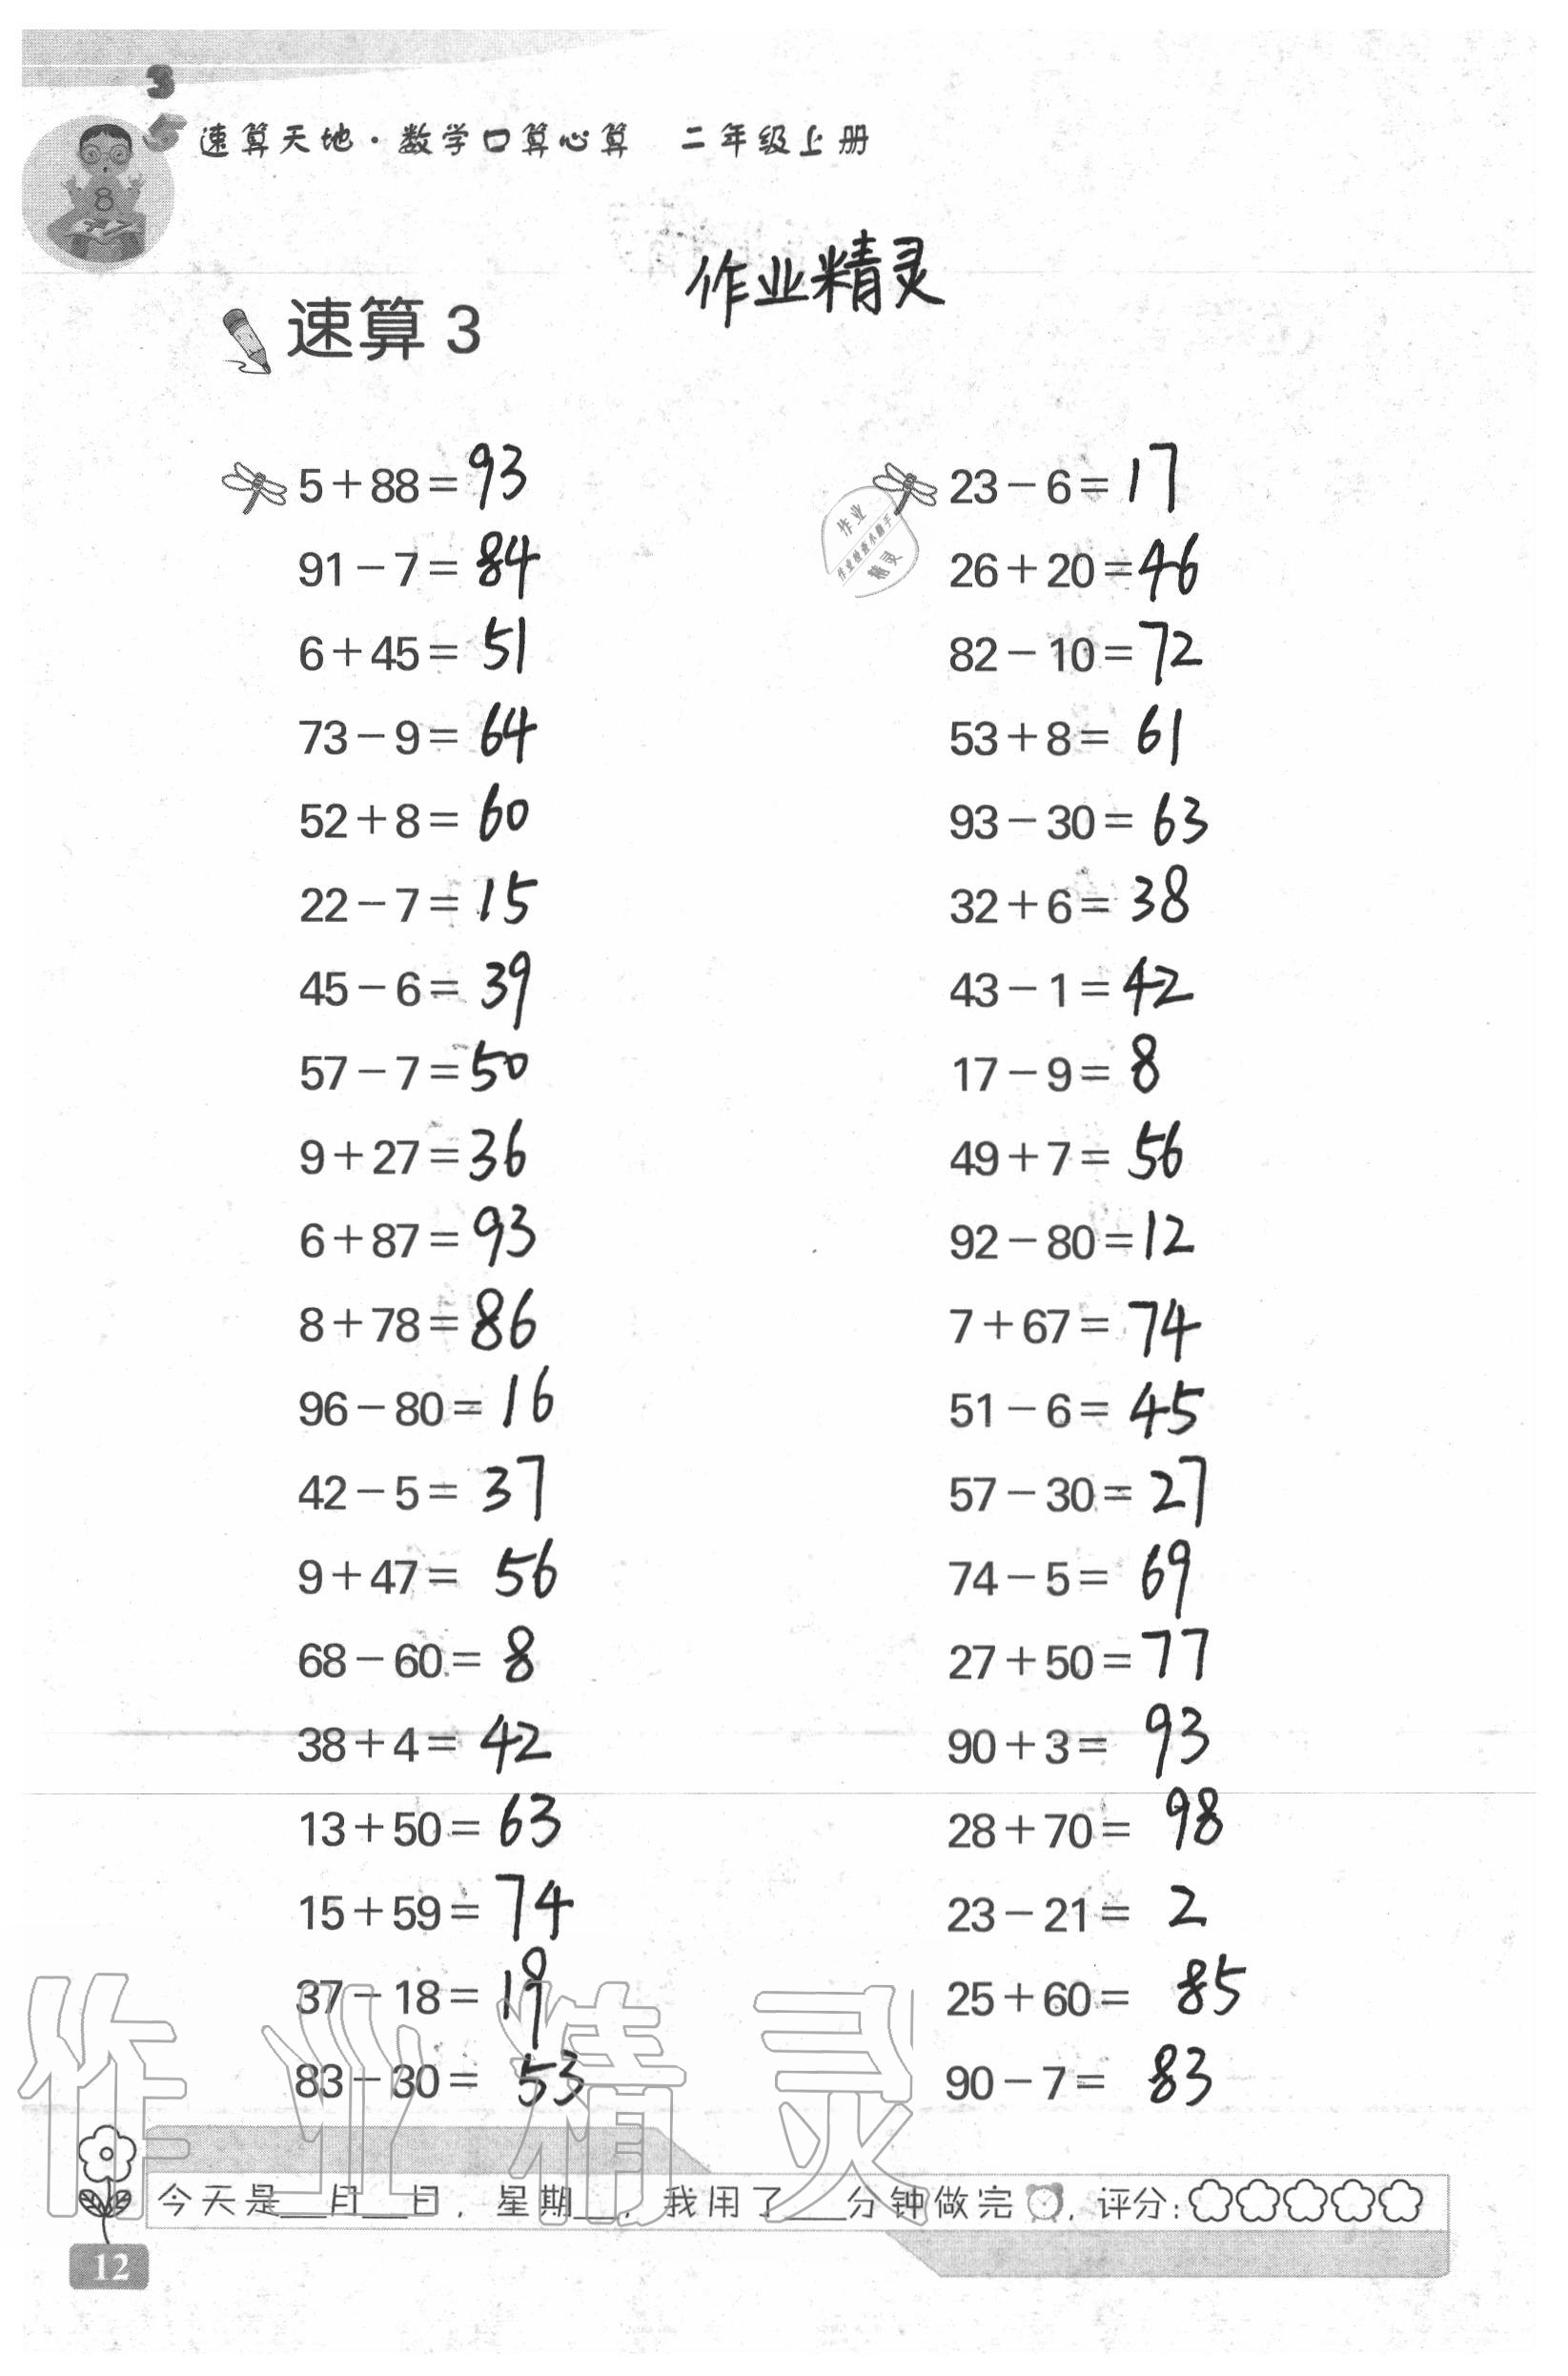 速算天地·数学口算心算 二年级上册
作业精灵
速算 3
5+88=93
91-7=84
6+45=51
73-9=64
52+8=60
22-7=15
45-6=39
57-7=50
9+27=36
6+87=93
8+78=86
96-80=16
42-5=37
9+47=56
68-60=8
38+4=42
13+50=63
15+59=74
37-18=19
83-30=53
23-6=17
26+20=46
82-10=72
53+8=61
93-30=63
32+6=38
43-1=42
17-9=8
49+7=56
92-80=12
7+67=74
51-6=45
57-30=27
74-5=69
27+50=77
90+3=93
28+70=98
23-21=2
25+60=85
90-7=83
作业
作业检查小助手
精灵
作业精灵
今天是__月__日，星期__，我用了__分钟做完，评分：
12